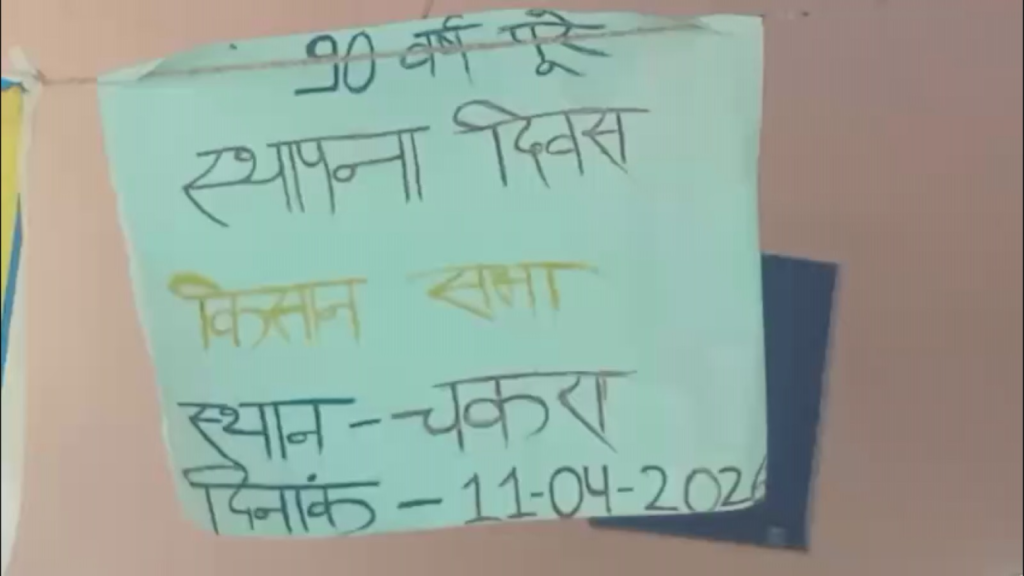 90 वर्ष पूरे
स्थापना दिवस
किसान सभा
स्थान - चकरा
दिनांक - 11-04-2026